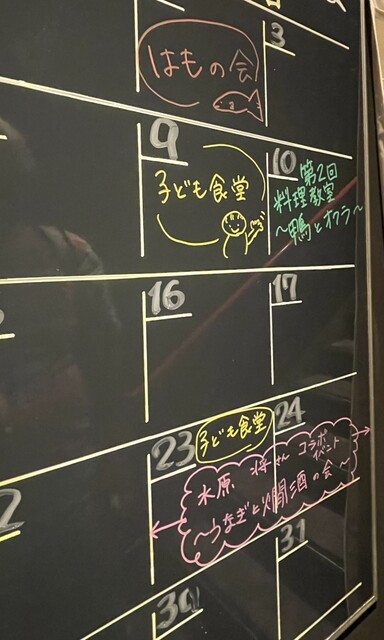 3
はもの会
9
子ども食堂
10
第2回
料理教室
〜鴨とオクラ〜
16
17
23
子ども食堂
24
水原 将さん コラボ
イベント
〜うなぎと燗酒の会〜
30
31